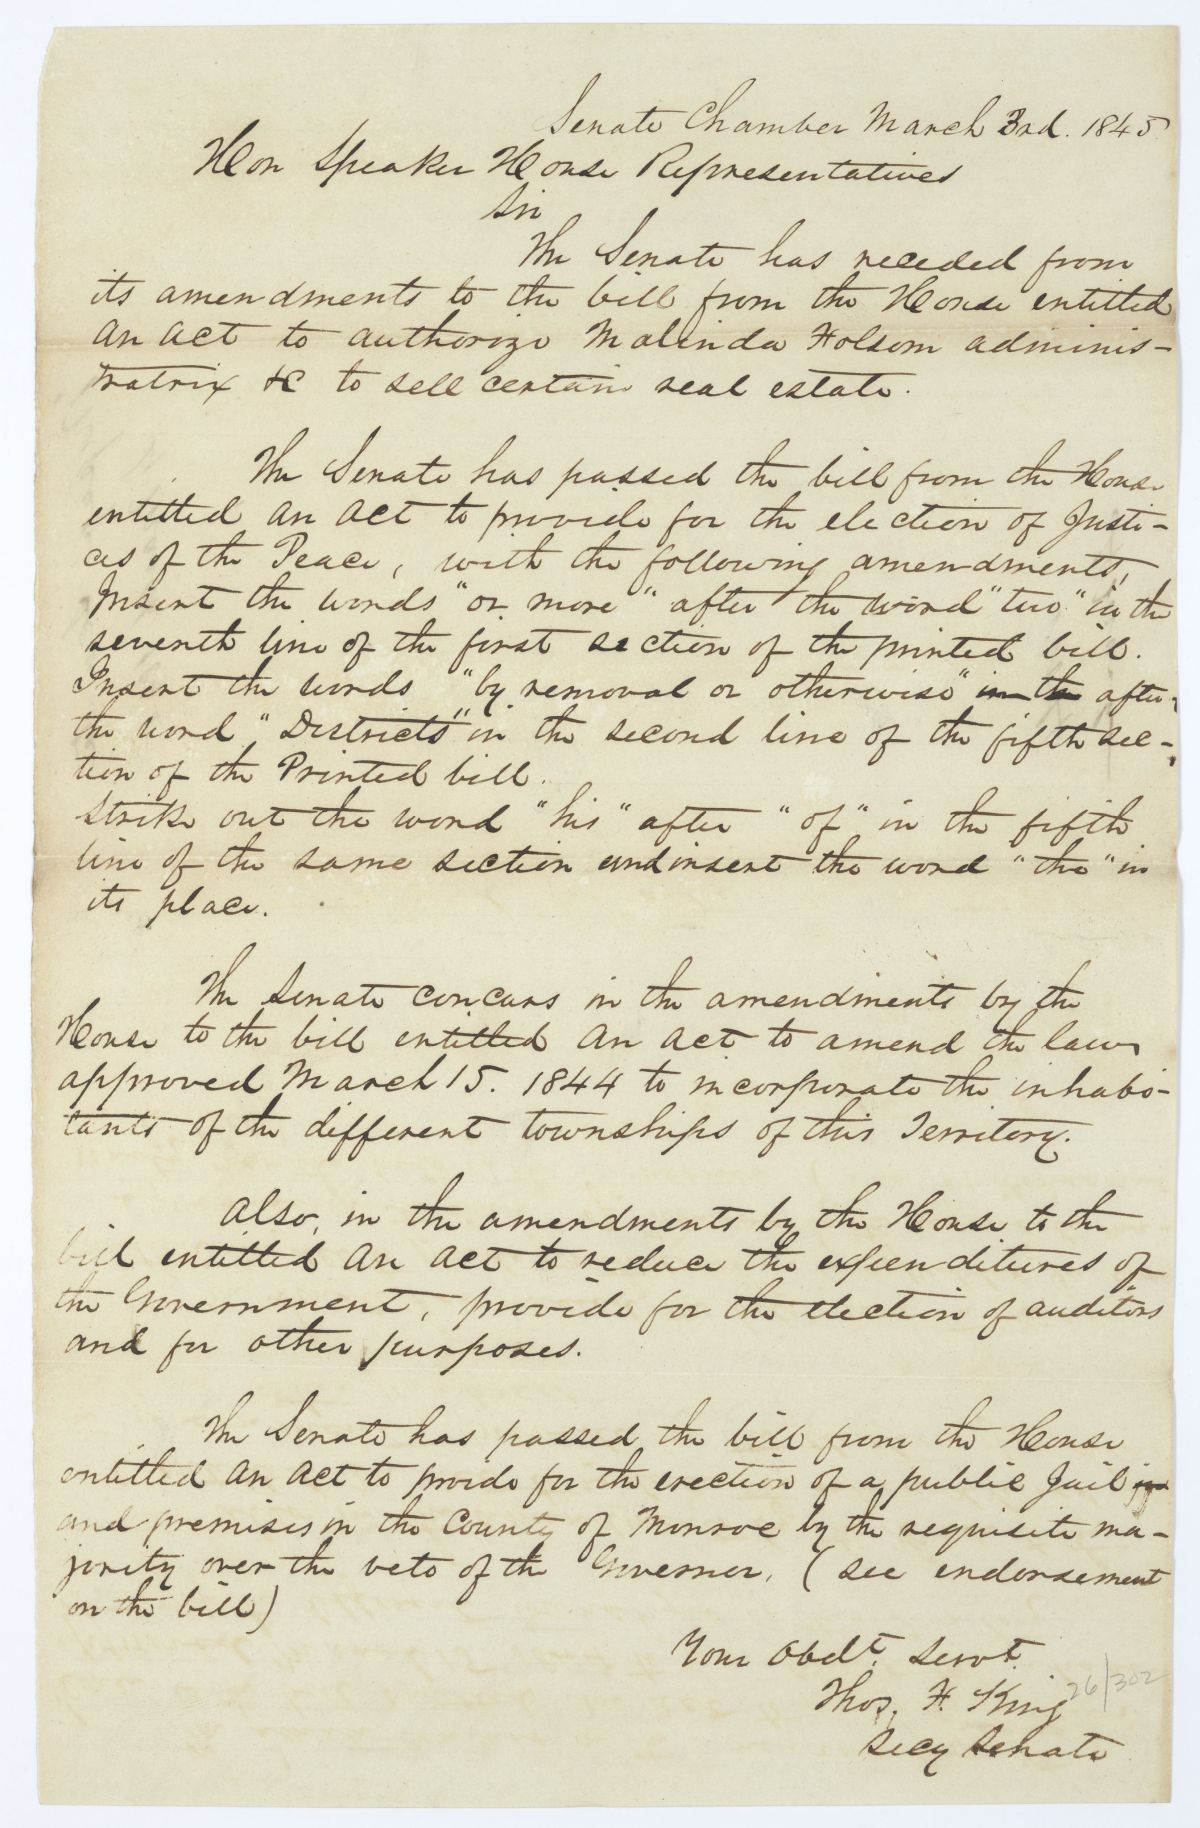 Senate Chamber March 3rd. 1845
Hon Speaker House Representatives
Sir
The Senate has receded from
its amendments to the bill from the House entitled
An Act to authorize Malinda Holsom adminis-
tratrix &c to sell certain real estate.
The Senate has passed the bill from the House
entitled An Act to provide for the election of Justi-
ces of the Peace, with the following amendments,
Insert the words "or more" after the word "two" in the
seventh line of the first section of the printed bill.
Insert the words "by removal or otherwise" in the after
the word "Districts" in the second line of the fifth sec-
tion of the Printed bill.
Strike out the word "his" after "of" in the fifth
line of the same section and insert the word "the" in
its place.
The Senate concurs in the amendments by the
House to the bill entitled An Act to amend the laws
approved March 15. 1844 to incorporate the inhabi-
tants of the different townships of this Territory.
Also, in the amendments by the House to the
bill entitled An Act to reduce the expenditures of
the Government, provide for the election of auditors
and for other purposes.
The Senate has passed the bill from the House
entitled An Act to provide for the erection of a public Jail
and premises in the County of Monroe by the requisite ma-
jority over the veto of the Governor, (see endorsement
on the bill)
Your Obdt. Servt.
Thos. H. King
Secy Senate
26/302